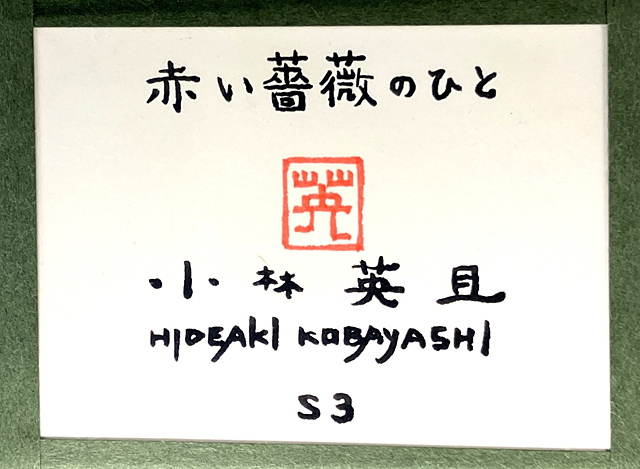 赤い薔薇のひと
英
小林 英且
HIDEAKI KOBAYASHI
S3